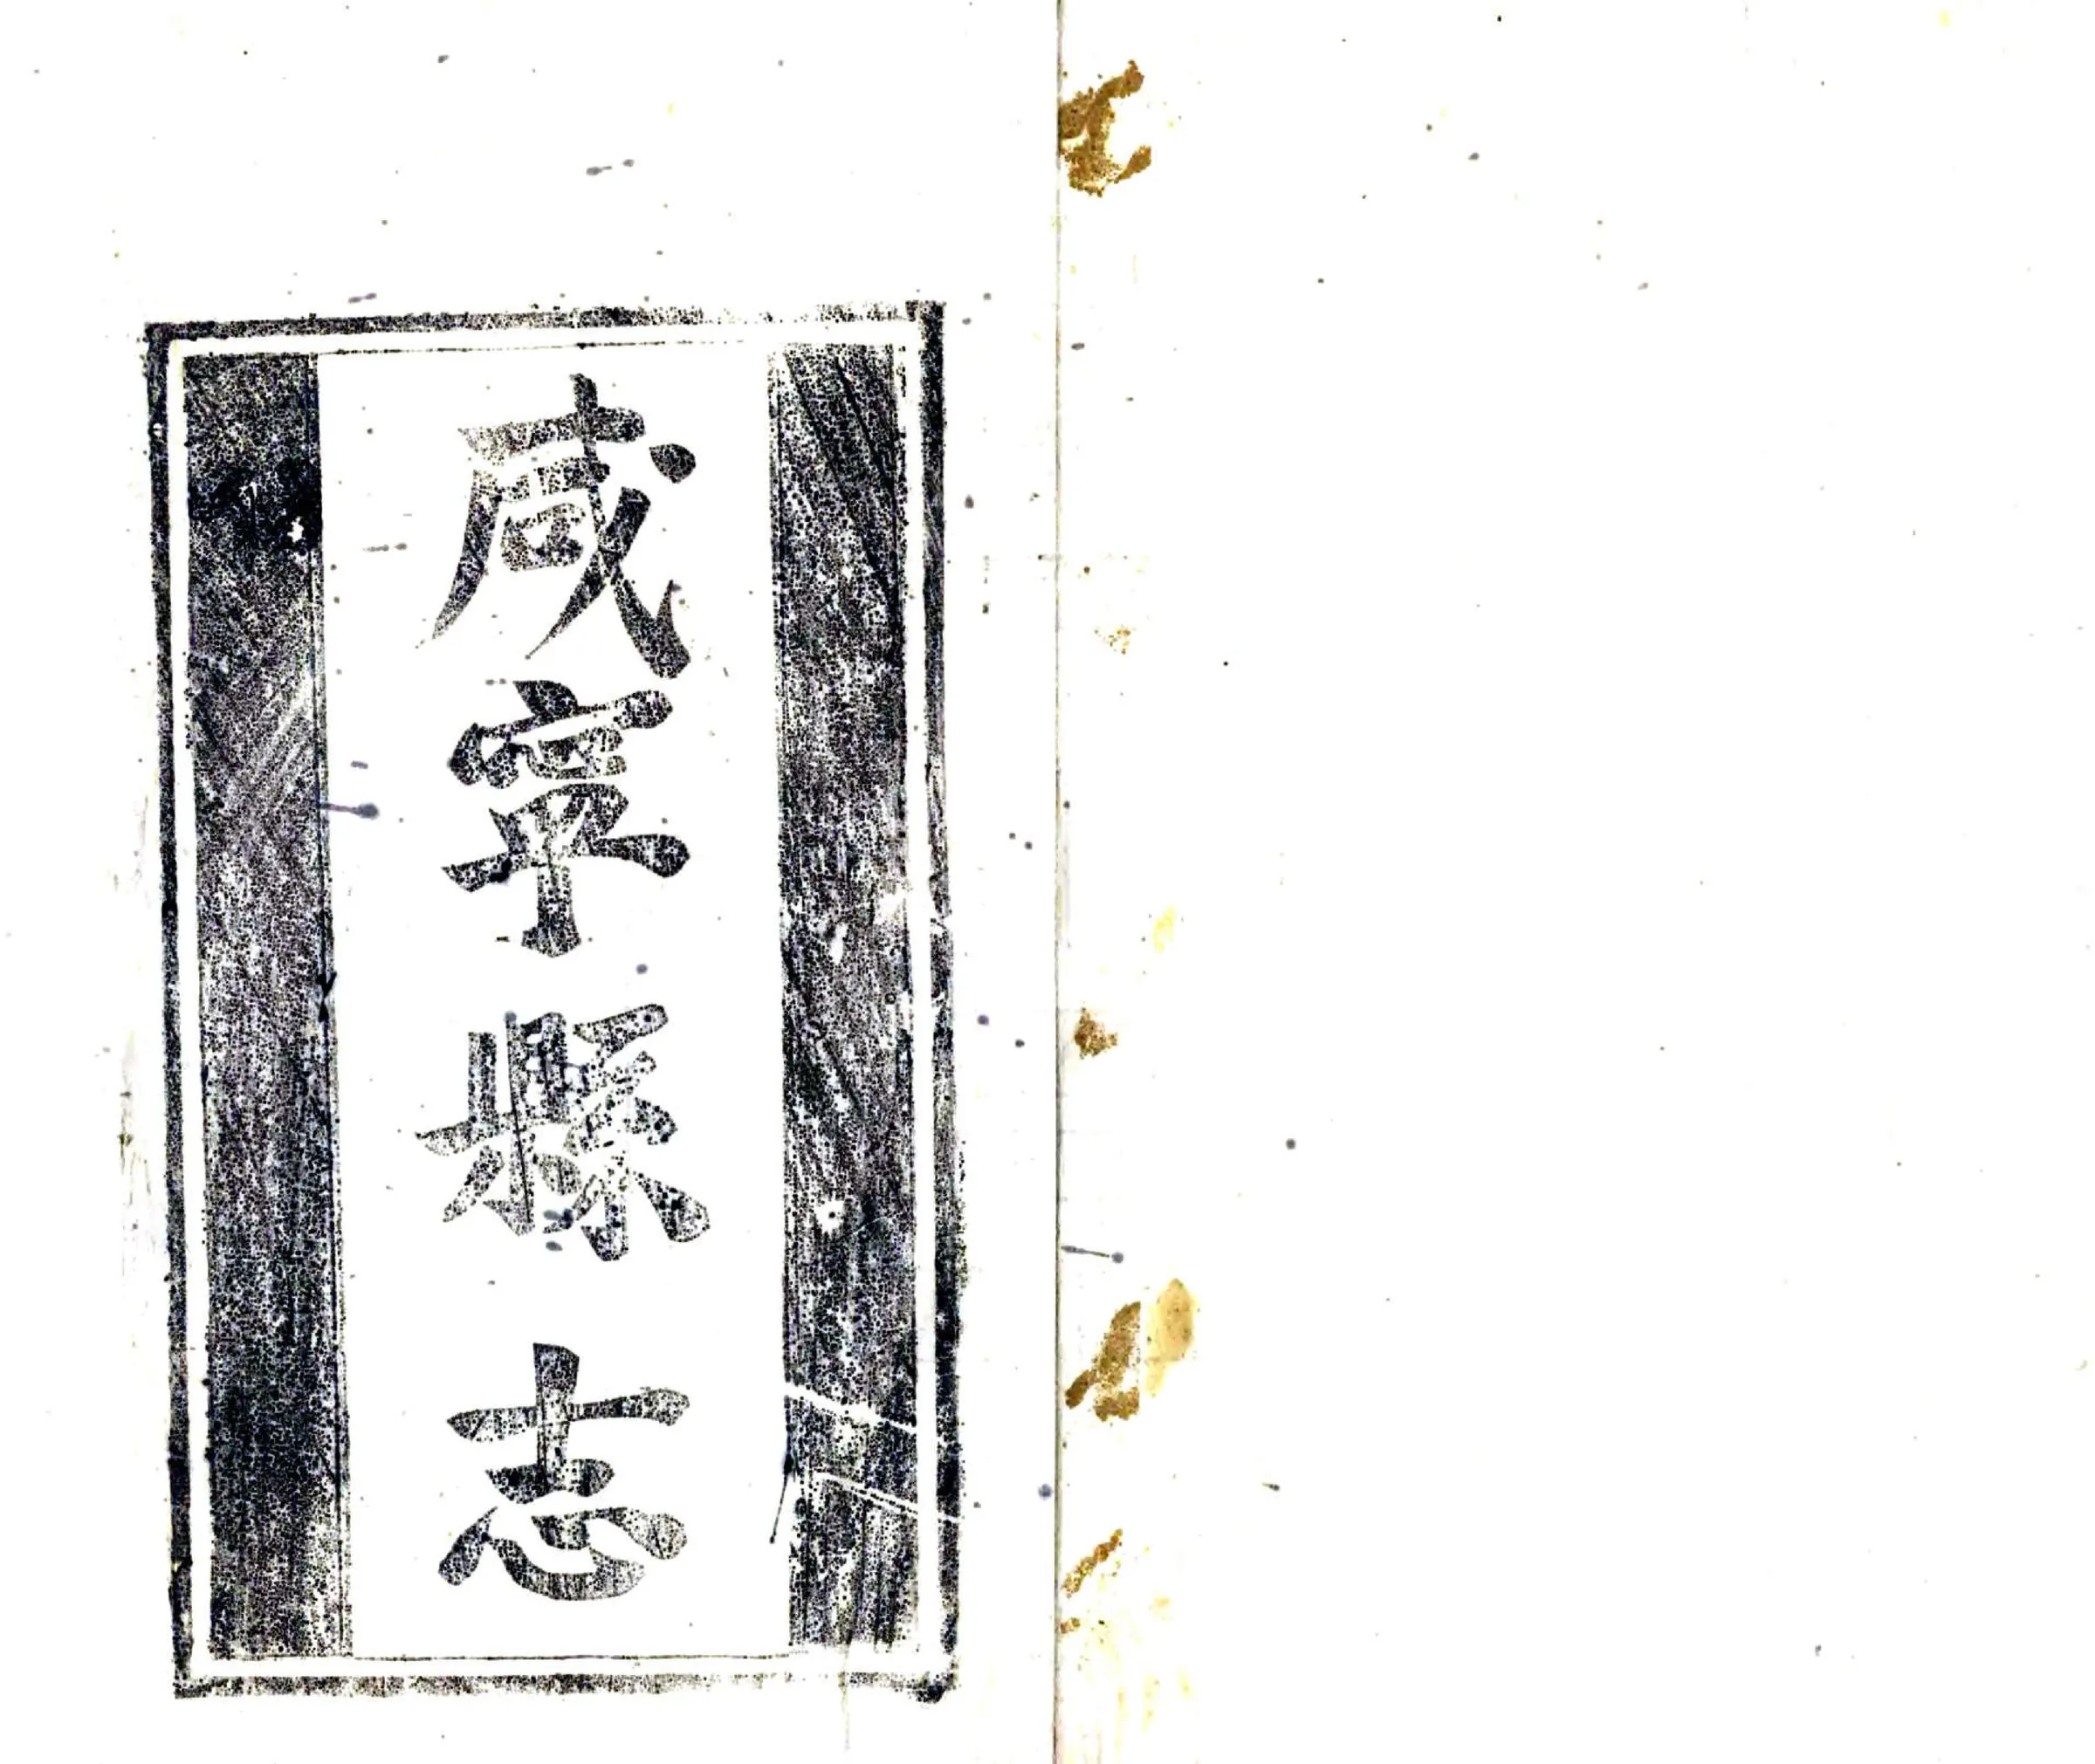 咸寧縣志